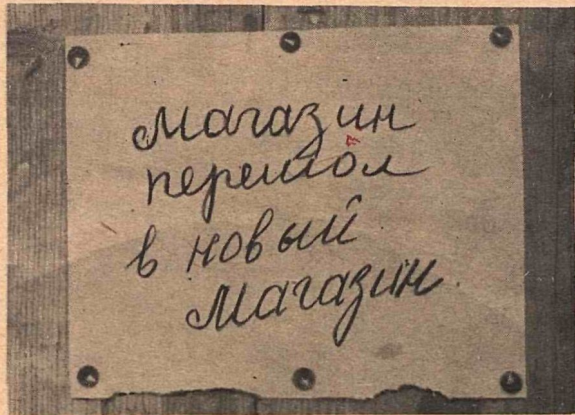 Магазин
перешол
в новый
магазин.